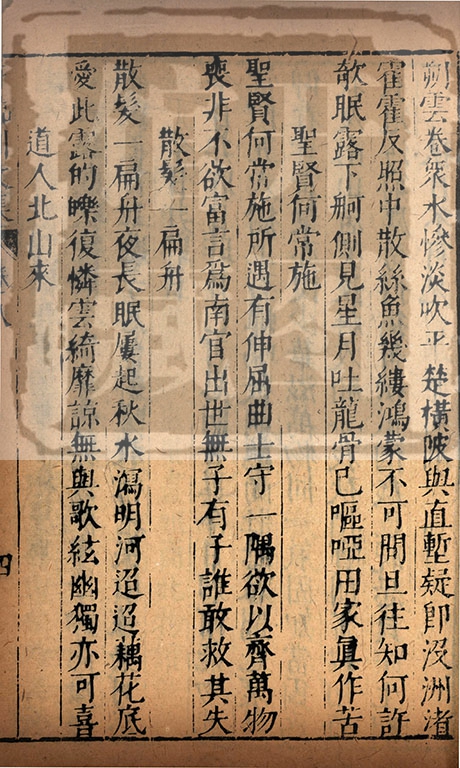 朔雲卷衆水慘淡吹平楚橫陂與直塹疑卽沒洲渚
霍霍反照中散絲魚幾縷鴻蒙不可問且往知何許
欹眠露下舸側見星月吐龍骨已嘔啞田家眞作苦
聖賢何常施
聖賢何常施所遇有伸屈曲士守一隅欲以齊萬物
喪非不欲富言爲南宮出世無子有子誰敢救其失
散髮一扁舟
散髮一扁舟夜長眠屢起秋水瀉明河迢迢藕花底
愛此露的皪復憐雲綺靡諒無與歌絃幽獨亦可喜
道人北山來
四